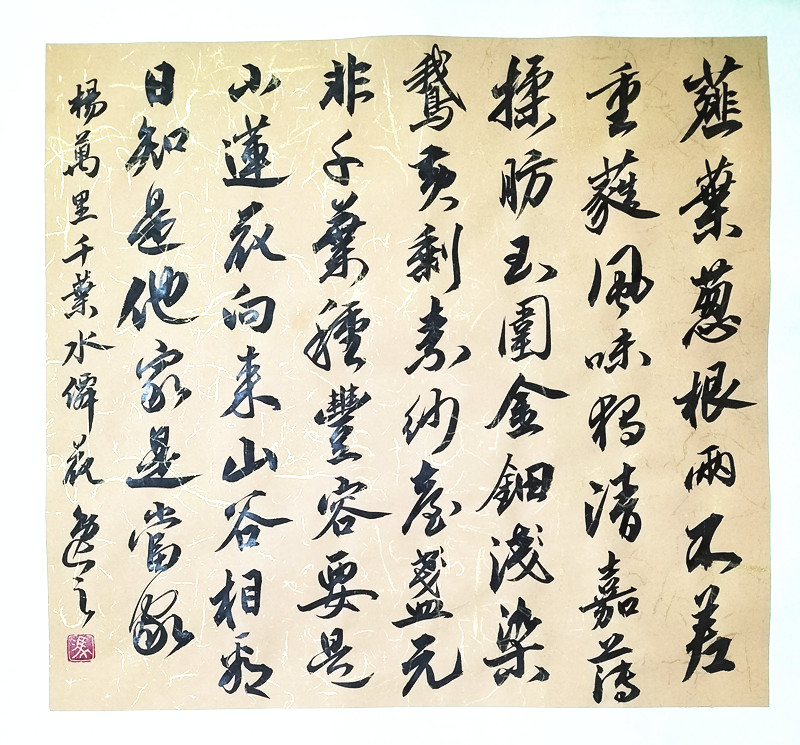 薤葉葱根兩不差
重蕤風味独清嘉薄
揉肪玉圍金鈿淺染
鵝黃剩素紗臺盞元
非千葉種豐容要是
小蓮花向来山谷相看
日知是他家是當家
楊萬里千葉水僊花